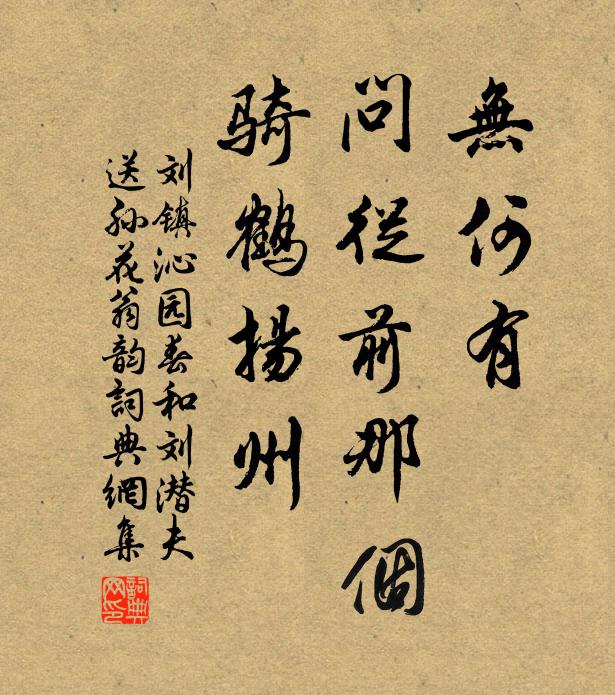 無何有
問從前那個
騎鶴揚州
刘镇沁园春和刘潜夫
送孙花翁韵詞典網集
詞典网印